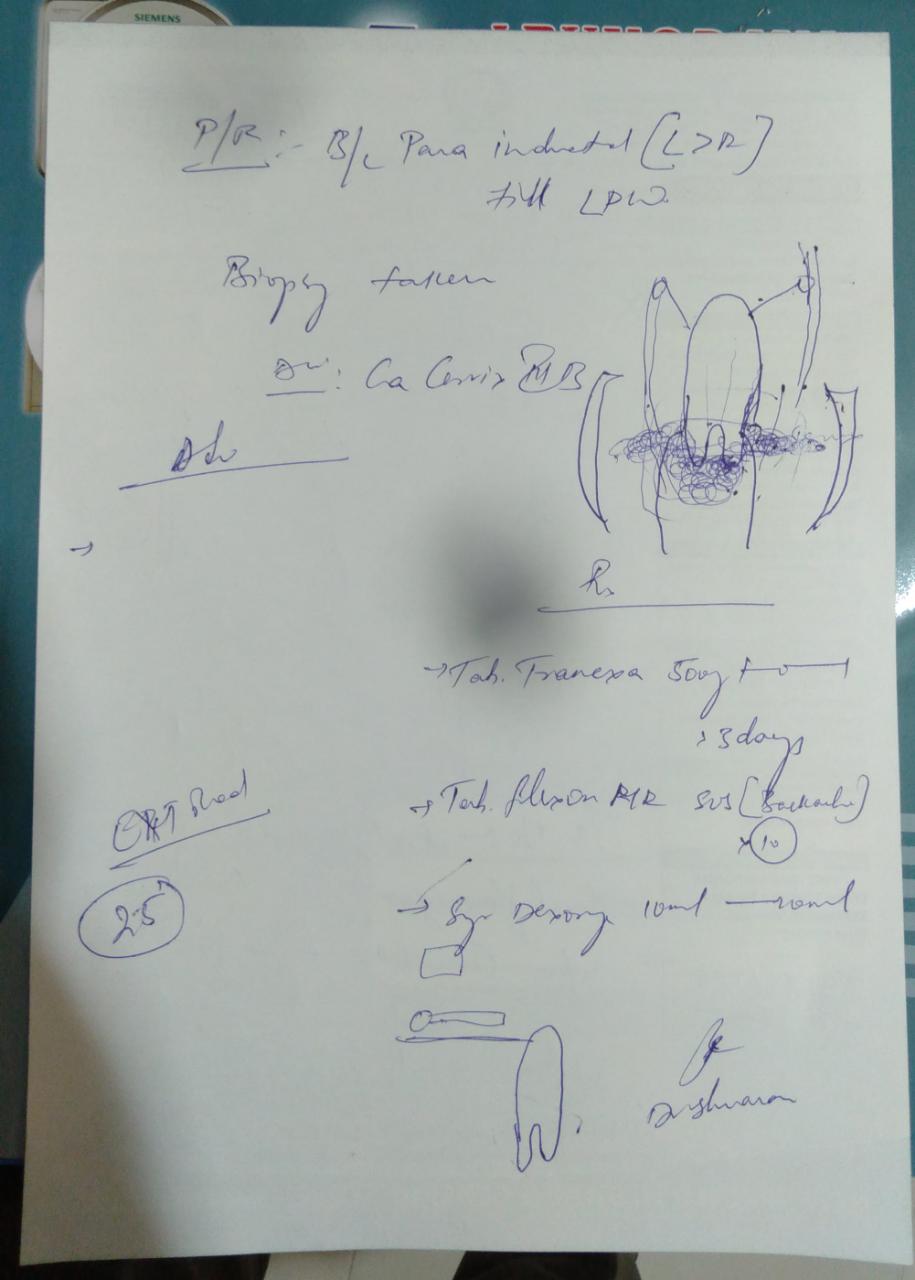 SIEMENS
P/R:- B/L Para indurated [L>R]
till LPW.
Biopsy taken
: Ca Cervix IIIB
Adv
Rx
→ Tab. Tranexa 500mg
x 3 days
→ Tab. flexon MR SOS [Backache]
x 10
→ Syr 10ml 10ml
Road
25